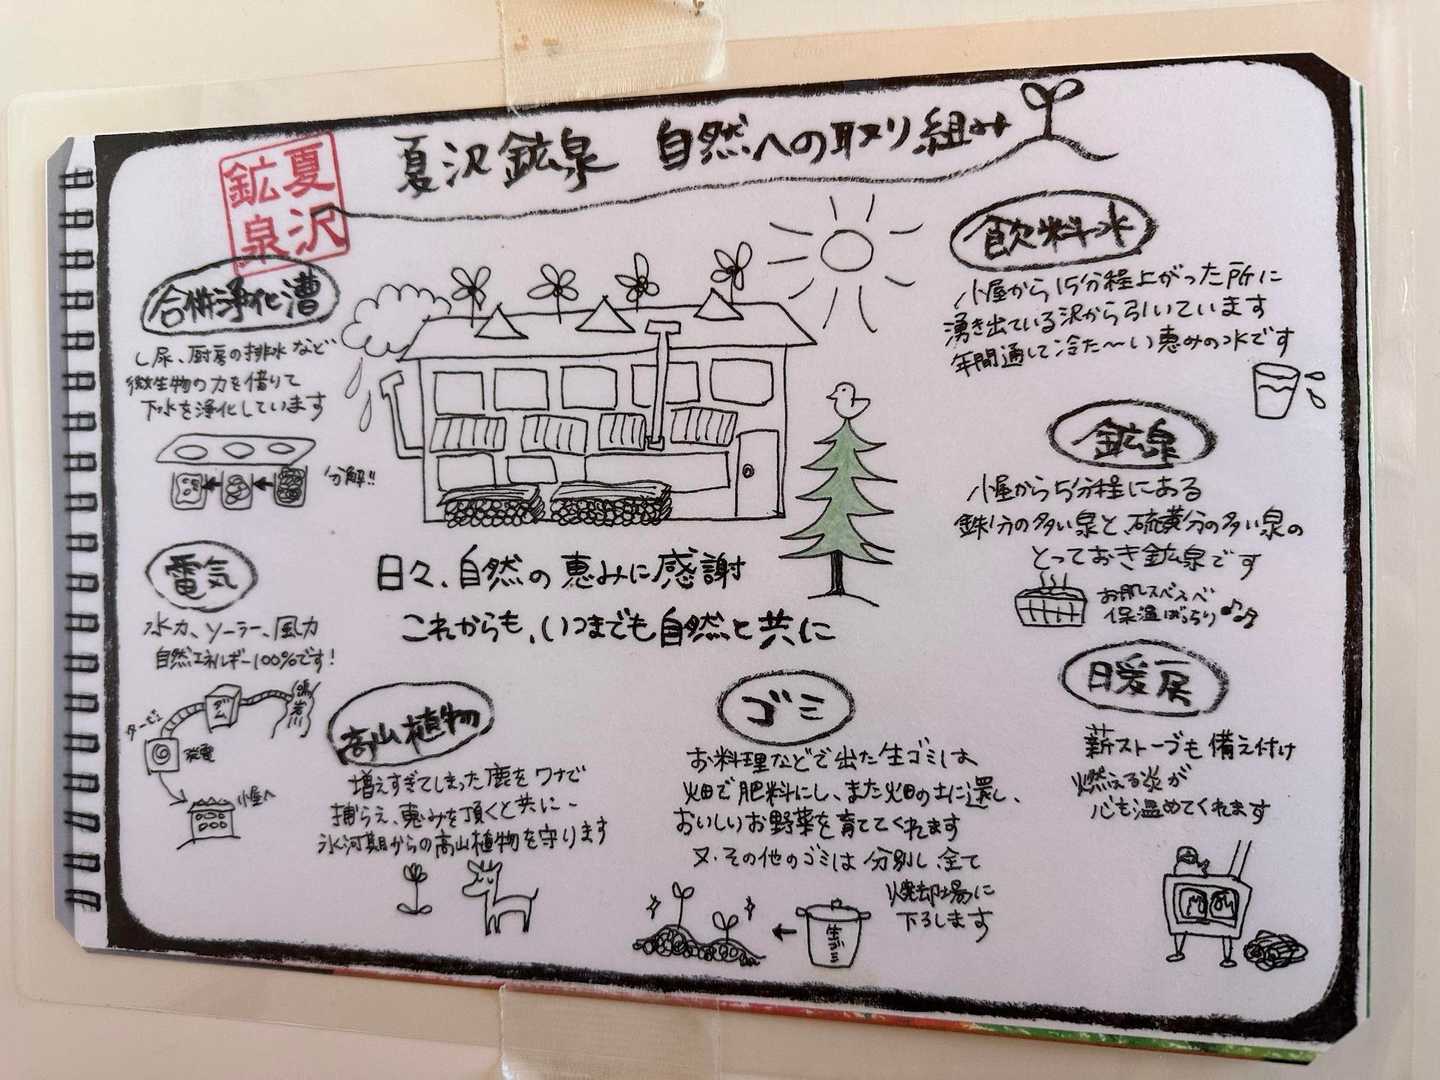 夏沢鉱泉 自然への取り組み
夏沢
鉱泉
合併浄化漕
し尿、厨房の排水など
微生物の力を借りて
下水を浄化しています
分解!!
電気
水力、ソーラー、風力
自然エネルギー100%です!
タービン
ダム
鳴岩川
発電
小屋へ
日々、自然の恵みに感謝
これからも、いつまでも自然と共に
高山植物
増えすぎてしまった鹿をワナで
捕らえ、恵みを頂くと共に、
氷河期からの高山植物を守ります
ゴミ
お料理などで出た生ゴミは
畑で肥料にし、また畑の土に還し、
おいしいお野菜を育ててくれます
又、その他のゴミは分別し、全て
焼却場に
下ろします
生ゴミ
飲料水
小屋から15分程上がった所に
湧き出ている沢から引いています
年間通して冷た〜い恵みの水です
鉱泉
小屋から5分程にある
鉄分の多い泉と、硫黄分の多い泉の
とっておき鉱泉です
お肌スベスベ
保温ばっちり♪♫
暖房
薪ストーブも備え付け
燃える炎が
心も温めてくれます